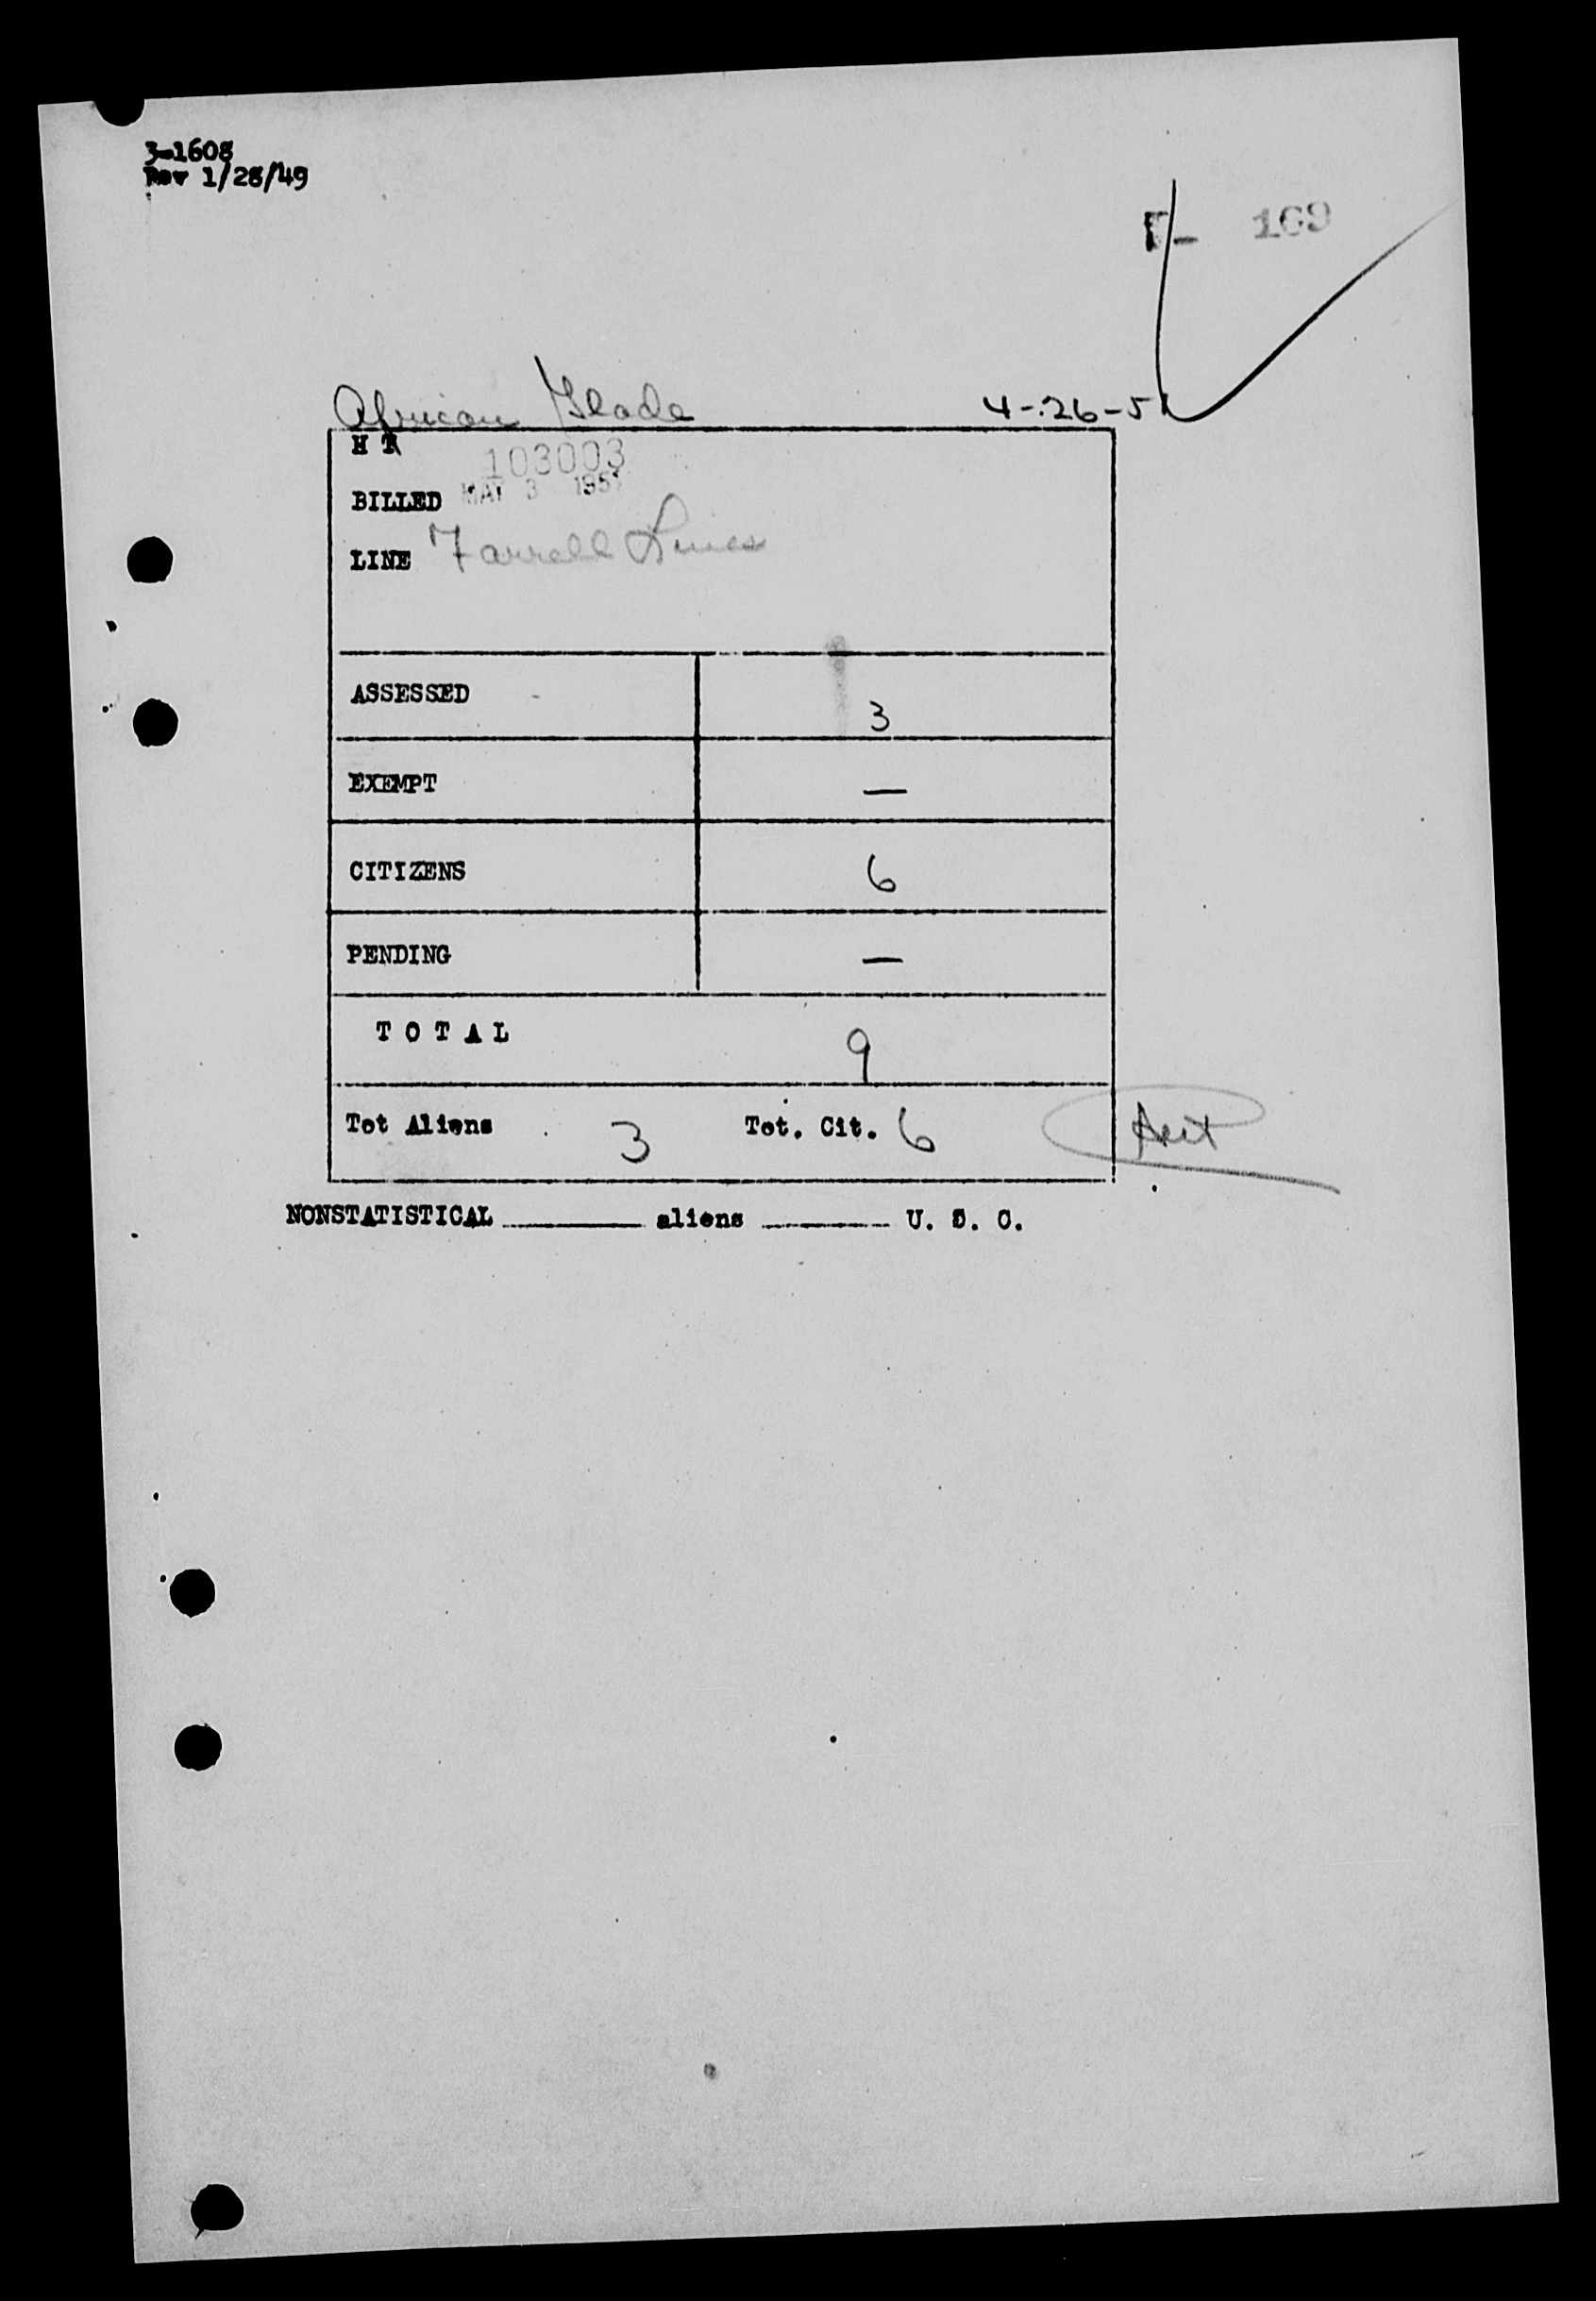 3-1608
Rev 1/28/49
169
African Glade 4-26-51
H T
103003
BILLED MAY 3 1951
LINE Farrell Lines
ASSESSED 3
EXEMPT —
CITIZENS 6
PENDING —
T O T A L 9
Tot Aliens 3 Tot. Cit. 6
NONSTATISTICAL ______ aliens ______ U. S. C.